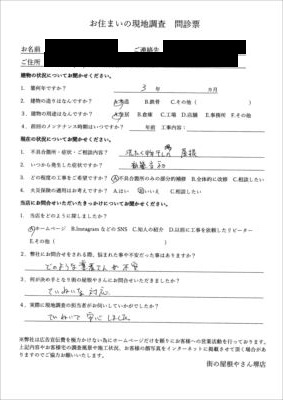 お住まいの現地調査　問診票
お名前　ご連絡先
ご住所
建物の状況についてお聞かせください。
1．築何年ですか？　3　年　ヵ月
2．建物の造りはなんですか？　A.木造　B.鉄骨　C.その他（　）
3．建物の用途はなんですか？　A.住居　B.倉庫　C.工場　D.店舗　E.事務所　F.その他
4．前回のメンテナンス時期はいつですか？　年前　工事内容：
不具合の状況についてお聞かせください。
1．不具合箇所・症状・ご相談内容？　洗たく物干しの　屋根
2．いつから発生した症状ですか？
3．どの程度の工事をご希望ですか？　A.不具合箇所のみの部分的補修　B.全体的に改修　C.相談したい
4．火災保険の適用はお考えですか？　A.はい　B.いいえ　C.相談したい
当店にお問合せいただいたきっかけについてお聞かせください。
1．当店をどのように探しましたか？
A.ホームページ　B.InstagramなどのSNS　C.知人の紹介　D.以前に工事を依頼したリピーター
E.その他（　）
2．弊社にお問合せをされる際、悩まれた事や不安だった事はありますか？
どのような業者さんか不安
3．何が決め手となり街の屋根やさんにお問合せいただきましたか？
ていねいな対応
4．実際に現地の担当者がお伺いしていかがでしたか？
ていねいで安心しました。
※弊社は広告宣伝費を極力かけない為にホームページだけを頼りにお客様への営業活動を行っております。
上記内容やお客様宅の調査風景や施工状況、お客様の顔写真をインターネットに掲載させて頂く場合が
ありますのでご協力お願いいたします。
街の屋根やさん堺店